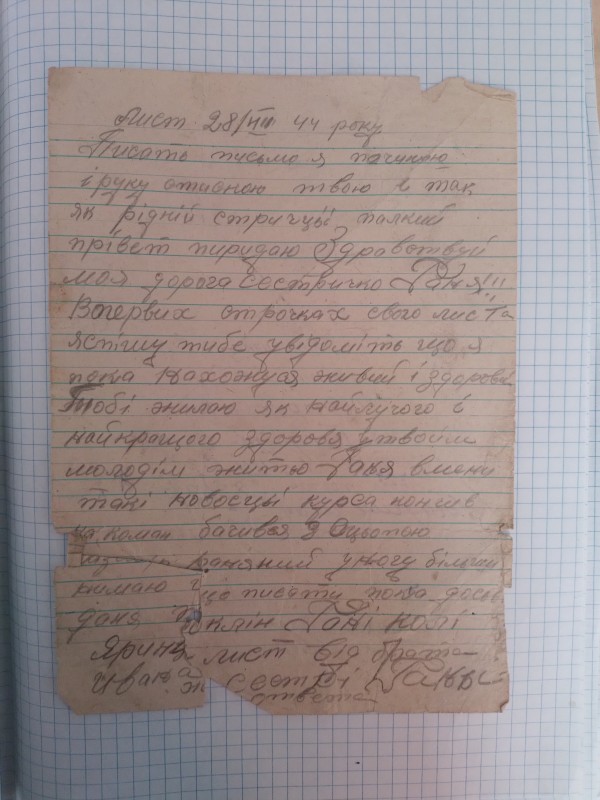 Лист 28/VIII 44 року
Писать письмо я начинаю
і руку отиною твою в так
як рідній стричці палкий
прівєт пиридаю Здраствуй
моя дорога Сестричко Ганя!!!
Вопервих строчках свого листа
я спішу тибе увідоміть що я
пока нахожуся живий і здоровий
Тобі жилаю як найлучого і
найкращого здоровя у твойом
молодім житью Ганя в мени
такі новосці курса кончив
на коман бачився з Оцьопою
раняний у ногу більш
нимаю що писати пока досві
даня поклін Гані колі
Ярині лист від брата
Івана до Сестри Ганни
ответа